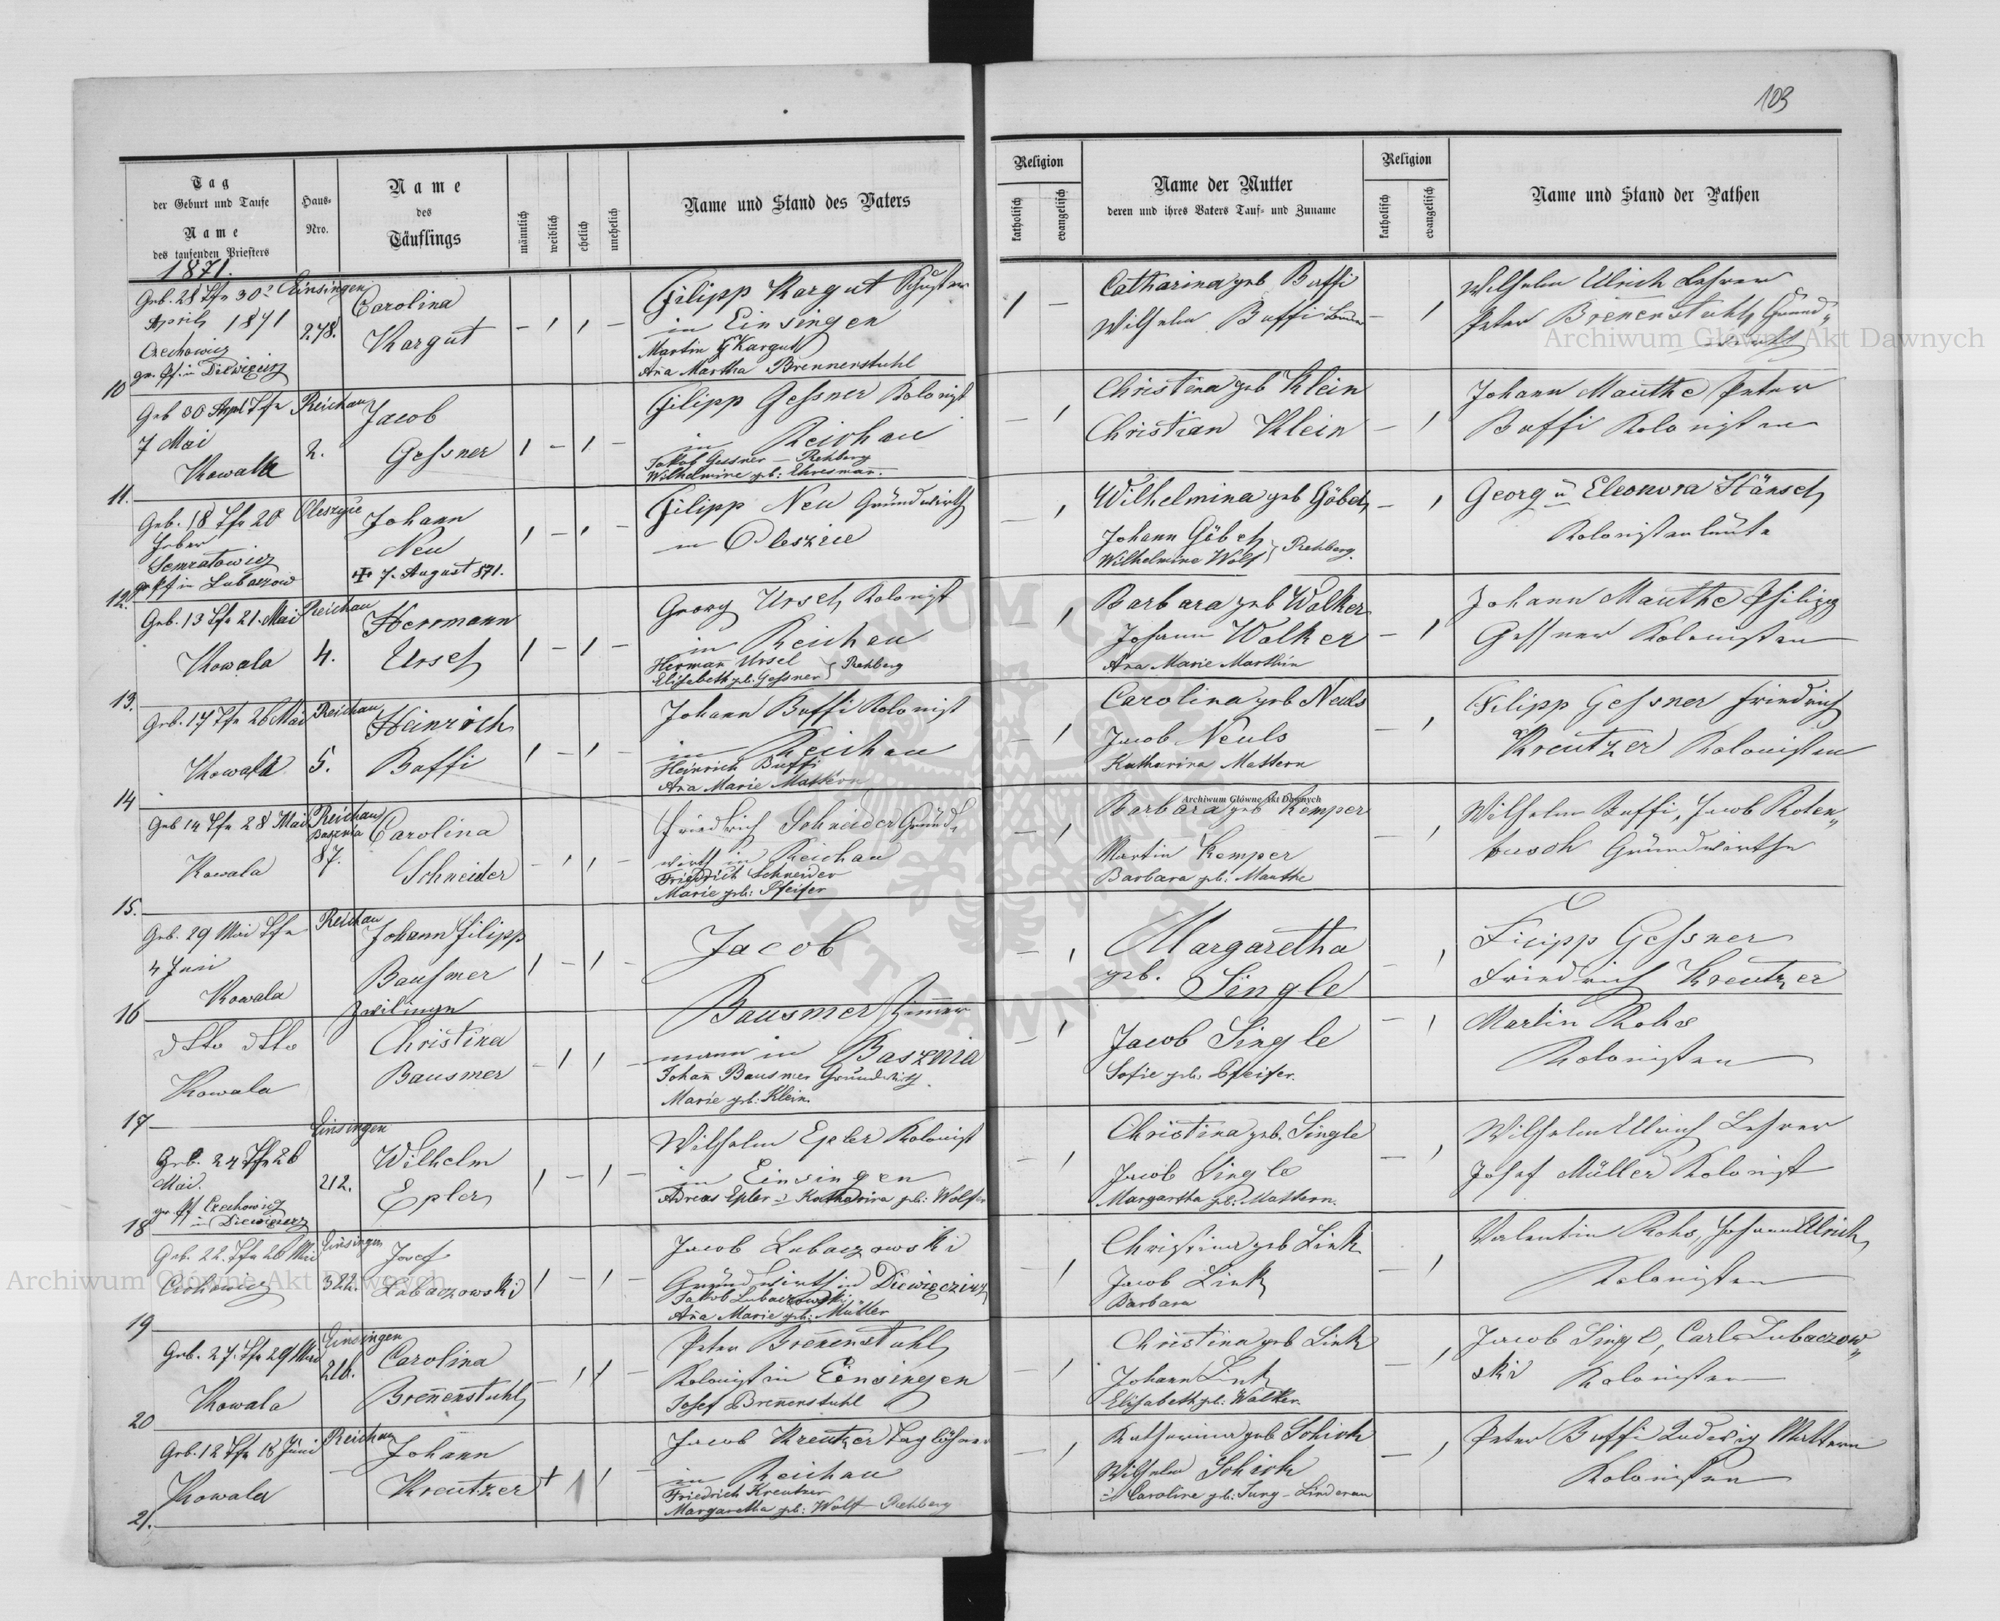 103
Tag
der Geburt und Taufe
Name
des taufenden Priesters
Haus-
Nro.
Name
des
Täuflings
männlich
weiblich
ehelich
unehelich
Name und Stand des Vaters
Religion
katholisch
evangelisch
Name der Mutter
deren und ihres Vaters Tauf- und Zuname
Religion
katholisch
evangelisch
Name und Stand der Pathen
1871.
Geb. 28 Tfe 30
April 1871
Czechowicz
10
Einsingen
278.
Carolina
Kargut
Filipp Kargut Schuster
in Einsingen
Martin Kargut
Ana Martha Brennerstuhl
Catharina geb Buffi
Wilhelm Buffi
Wilhelm Ulrich Lehrer
Peter Brenenstuhl Grund„
wirth
Geb 30 Apl Tfe
7 Mai
Kowala
11.
Reichau
2.
Jacob
Gessner
Filipp Gessner Kolonist
in Reichau
Jakob Gessner – Rehberg
Wilhelmine geb: Ehresman.
Christina geb Klein
Christian Klein
Johann Mauthe Peter
Buffi Kolonisten
Geb. 18 Tfe 20
Semratowicz
gr. kf in Lubaczow
12.
Oleszyce
Johann
Neu
✠ 7. August 871.
Filipp Neu Grundwirth
in Oleszice
Wilhelmina geb Göbel
Johann Göbel
Wilhelmine Wolf } Rehberg.
Georg u Eleonora Hänsel
Kolonistenleute
Geb. 13 Tfe 21. Mai
Kowala
13.
Reichau
4.
Herrmann
Ursel
Georg Ursel Kolonist
in Reichau
Herman Ursel
Elisabeth geb. Gessner } Rehberg
Barbara geb Walker
Johann Walker
Ana Marie Marthin
Johann Mauthe Philipp
Gessner Kolonisten
Geb. 17 Tfe 26 Mai
Kowala
14
Reichau
5.
Heinrich
Buffi
Johann Buffi Kolonist
in Reichau
Heinrich Buffi
Ana Marie Mattern
Carolina geb Neuls
Jacob Neuls
Katharina Mattern
Filipp Gessner Friedrich
Kreutzer Kolonisten
Geb 14 Tfe 28 Mai
Kowala
15.
Reichau
Basznia
87.
Carolina
Schneider
Friedrich Schneider Grund„
wirth in Reichau
Friedrich Schneider
Marie geb: Pfeifer
Barbara geb Kemper
Martin Kemper
Barbara geb: Mauthe
Wilhelm Buffi, Jacob Roten„
busch Grundwirthe
Geb. 29 Mai Tfe
4 Juni
Kowala
16
Reichau
Johann Filipp
Bausmer
Zwilinge
Jacob
Bausmer Zimmer
Margaretha
geb. Single
Filipp Gessner
Friedrich Kreutzer
dtto dtto
Kowala
17
Christina
Bausmer
mann in Basznia
Johann Bausmer Grundwirth
Marie geb: Klein
Jacob Single
Sofie geb. Pfeifer.
Martin Rohs
Kolonisten
Geb. 24 Tfe 26
Mai.
gr. kf Czechowicz
in Diewięcierz
18
Einsingen
212.
Wilhelm
Epler
Wilhelm Epler Kolonist
in Einsingen
Adreas Epler Katharina geb: Wolfer
Christina geb. Single
Jacob Single
Margaretha geb: Mattern.
Wilhelm Ulrich Lehrer
Josef Müller Kolonist
Geb. 22. Tfe 26 Mai
19
Einsingen
322.
Josef
Lubaczowski
Jacob Lubaczowski
Grundwirth in Diewięcierz
Jakob Lubaczowski
Ana Marie geb: Müller
Christina geb Link
Jacob Link
Barbara
Valentin Rohs, Johann Ulrich
Kolonisten
Geb. 27. Tfe 29 Mai
Kowala
20
Einsingen
216.
Carolina
Brenenstuhl
Peter Brenenstuhl
Kolonist in Einsingen
Josef Brenenstuhl
Christina geb Link
Johann Link
Elisabeth geb: Walker
Jacob Singl, Carl Lubaczow„
ski Kolonisten
Geb. 12 Tfe 18 Juni
Kowala
21.
Reichau
Johann
Kreutzer
Jacob Kreutzer Taglöhner
in Reichau
Friedrich Kreutzer
Margaretha geb: Wolf – Rehberg
Katharina geb Schick
Wilhelm Schick
Caroline geb: Jung – Linderau
Peter Buffi Ludwig Mattern
Kolonisten
Archiwum Główne Akt Dawnych
Archiwum Główne Akt Dawnych
Archiwum Główne Akt Dawnych